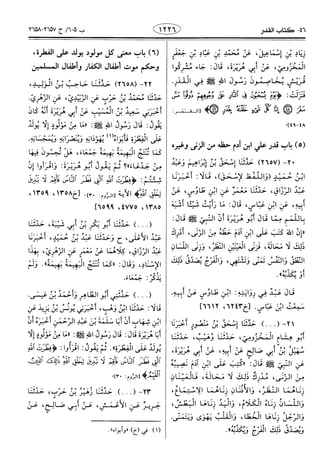 ٥٦- كتاب القدر
١٢٢٦
م ٥٠٥/ ح ٢٦٥٧-٢٦٥٨
زِيَادِ بْنِ إِسْمَاعِيلَ، عَنْ مُحَمَّدِ بْنِ عَبَّادِ بْنِ جَعْفَرٍ
الْمَخْزُومِيِّ، عَنْ أَبِي هُرَيْرَةَ، قَالَ: جَاءَ مُشْرِكُوا
قُرَيْشٍ يُخَاصِمُونَ رَسُولَ اللهِ ﷺ فِي الْقَدَرِ،
فَنَزَلَتْ: ﴿يَوْمَ يُسْحَبُونَ فِي النَّارِ عَلَى وُجُوهِهِمْ ذُوقُوا مَسَّ
سَقَرَ ۝ إِنَّا كُلَّ شَيْءٍ خَلَقْنَاهُ بِقَدَرٍ﴾ [القمر:
٤٨،٤٩]
(٥) باب قدر على ابن آدم حظه من الزنى وغيره
٢٠- (٢٦٥٧) حَدَّثَنَا إِسْحٰقُ بْنُ إِبْرَاهِيمَ وَعَبْدُ
بْنُ حُمَيْدٍ (وَاللَّفْظُ لِإِسْحٰقَ)، قَالَا: أَخْبَرَنَا
عَبْدُ الرَّزَّاقِ، حَدَّثَنَا مَعْمَرٌ عَنِ ابْنِ طَاوُسٍ، عَنْ
أَبِيهِ، عَنِ ابْنِ عَبَّاسٍ، قَالَ: مَا رَأَيْتُ شَيْئًا أَشْبَهَ
بِاللَّمَمِ مِمَّا قَالَ أَبُو هُرَيْرَةَ أَنَّ النَّبِيَّ ﷺ قَالَ:
«إِنَّ اللهَ كَتَبَ عَلَى ابْنِ آدَمَ حَظَّهُ مِنَ الزِّنَى، أَدْرَكَ
ذٰلِكَ لَا مَحَالَةَ، فَزِنَى الْعَيْنَيْنِ النَّظَرُ، وَزِنَى اللِّسَانِ
النُّطْقُ وَالنَّفْسُ تَمَنَّى وَتَشْتَهِي، وَالْفَرْجُ يُصَدِّقُ ذٰلِكَ
أَوْ يُكَذِّبُهُ».
قَالَ عَبْدٌ فِي رِوَايَتِهِ: ابْنِ طَاوُسٍ عَنْ أَبِيهِ.
سَمِعْتُ ابْنَ عَبَّاسٍ. [خ٦٢٤٣، ٦٦١٢]
٢١- (...) حَدَّثَنَا إِسْحٰقُ بْنُ مَنْصُورٍ أَخْبَرَنَا
أَبُو هِشَامٍ الْمَخْزُومِيُّ، حَدَّثَنَا وُهَيْبٌ، حَدَّثَنَا
سُهَيْلُ بْنُ أَبِي صَالِحٍ عَنْ أَبِيهِ، عَنْ أَبِي هُرَيْرَةَ،
عَنِ النَّبِيِّ ﷺ قَالَ: «كُتِبَ عَلَى ابْنِ آدَمَ نَصِيبُهُ
مِنَ الزِّنَى، مُدْرِكٌ ذٰلِكَ لَا مَحَالَةَ، فَالْعَيْنَانِ
زِنَاهُمَا النَّظَرُ، وَالْأُذُنَانِ زِنَاهُمَا الِاسْتِمَاعُ،
وَاللِّسَانُ زِنَاهُ الْكَلَامُ، وَالْيَدُ زِنَاهَا الْبَطْشُ،
وَالرِّجْلُ زِنَاهَا الْخُطَا، وَالْقَلْبُ يَهْوَى وَيَتَمَنَّى،
وَيُصَدِّقُ ذٰلِكَ الْفَرْجُ وَيُكَذِّبُهُ».
(٦) باب معنى كل مولود يولد على الفطرة،
وحكم موت أطفال الكفار وأطفال المسلمين
٢٢- (٢٦٥٨) حَدَّثَنَا حَاجِبُ بْنُ الْوَلِيدِ،
حَدَّثَنَا مُحَمَّدُ بْنُ حَرْبٍ عَنِ الزُّبَيْدِيِّ، عَنِ الزُّهْرِيِّ.
أَخْبَرَنِي سَعِيدُ بْنُ الْمُسَيَّبِ عَنْ أَبِي هُرَيْرَةَ أَنَّهُ كَانَ
يَقُولُ: قَالَ رَسُولُ اللهِ ﷺ: «مَا مِنْ مَوْلُودٍ إِلَّا يُولَدُ
عَلَى الْفِطْرَةِ فَأَبَوَاهُ(١) يُهَوِّدَانِهِ وَيُنَصِّرَانِهِ وَيُمَجِّسَانِهِ،
كَمَا تُنْتَجُ الْبَهِيمَةُ بَهِيمَةً جَمْعَاءَ، هَلْ تُحِسُّونَ فِيهَا
مِنْ جَدْعَاءَ؟» ثُمَّ يَقُولُ أَبُو هُرَيْرَةَ: وَاقْرَأُوا إِنْ
شِئْتُمْ: ﴿فِطْرَتَ اللهِ الَّتِي فَطَرَ النَّاسَ عَلَيْهَا لَا تَبْدِيلَ
لِخَلْقِ اللهِ﴾ الْآيَةَ [الروم: ٣٠]. [خ١٣٥٨، ١٣٥٩،
١٣٨٥، ٤٧٧٥، ٦٥٩٩]
(...) حَدَّثَنَا أَبُو بَكْرِ بْنُ أَبِي شَيْبَةَ، حَدَّثَنَا
عَبْدُ الْأَعْلَى، ح وَحَدَّثَنَا عَبْدُ بْنُ حُمَيْدٍ، أَخْبَرَنَا
عَبْدُ الرَّزَّاقِ، كِلَاهُمَا عَنْ مَعْمَرٍ عَنِ الزُّهْرِيِّ، بِهٰذَا
الْإِسْنَادِ، وَقَالَ: «كَمَا تُنْتَجُ الْبَهِيمَةُ بَهِيمَةً». وَلَمْ
يَذْكُرْ: جَمْعَاءَ.
(...) حَدَّثَنِي أَبُو الطَّاهِرِ وَأَحْمَدُ بْنُ عِيسَى،
قَالَا: حَدَّثَنَا ابْنُ وَهْبٍ، أَخْبَرَنِي يُونُسُ بْنُ يَزِيدَ عَنِ
ابْنِ شِهَابٍ أَنَّ أَبَا سَلَمَةَ بْنَ عَبْدِ الرَّحْمٰنِ أَخْبَرَهُ أَنَّ
أَبَا هُرَيْرَةَ قَالَ: قَالَ رَسُولُ اللهِ ﷺ: «مَا مِنْ مَوْلُودٍ إِلَّا
يُولَدُ عَلَى الْفِطْرَةِ». ثُمَّ يَقُولُ: اقْرَأُوا: ﴿فِطْرَتَ اللهِ
الَّتِي فَطَرَ النَّاسَ عَلَيْهَا لَا تَبْدِيلَ لِخَلْقِ اللهِ ذٰلِكَ الدِّينُ
الْقَيِّمُ﴾ [الروم: ٣٠].
٢٣- (...) حَدَّثَنَا زُهَيْرُ بْنُ حَرْبٍ، حَدَّثَنَا
جَرِيرٌ عَنِ الْأَعْمَشِ، عَنْ أَبِي صَالِحٍ، عَنْ
(١) في (خ) «وأبواه».